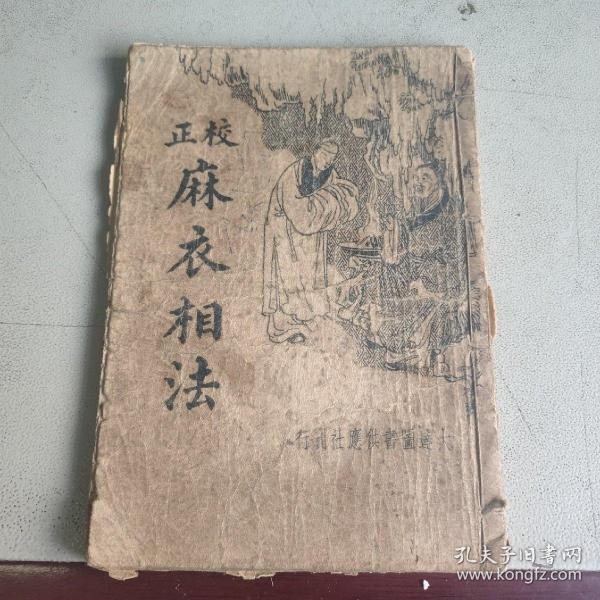 校正
麻衣相法
大達圖書供應社刊行
孔夫子旧书网
www.kongfz.com